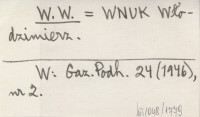 W.W. = WNUK Wło-
dzimierz.
W: Gaz. Podh. 24 (1946),
nr 2.